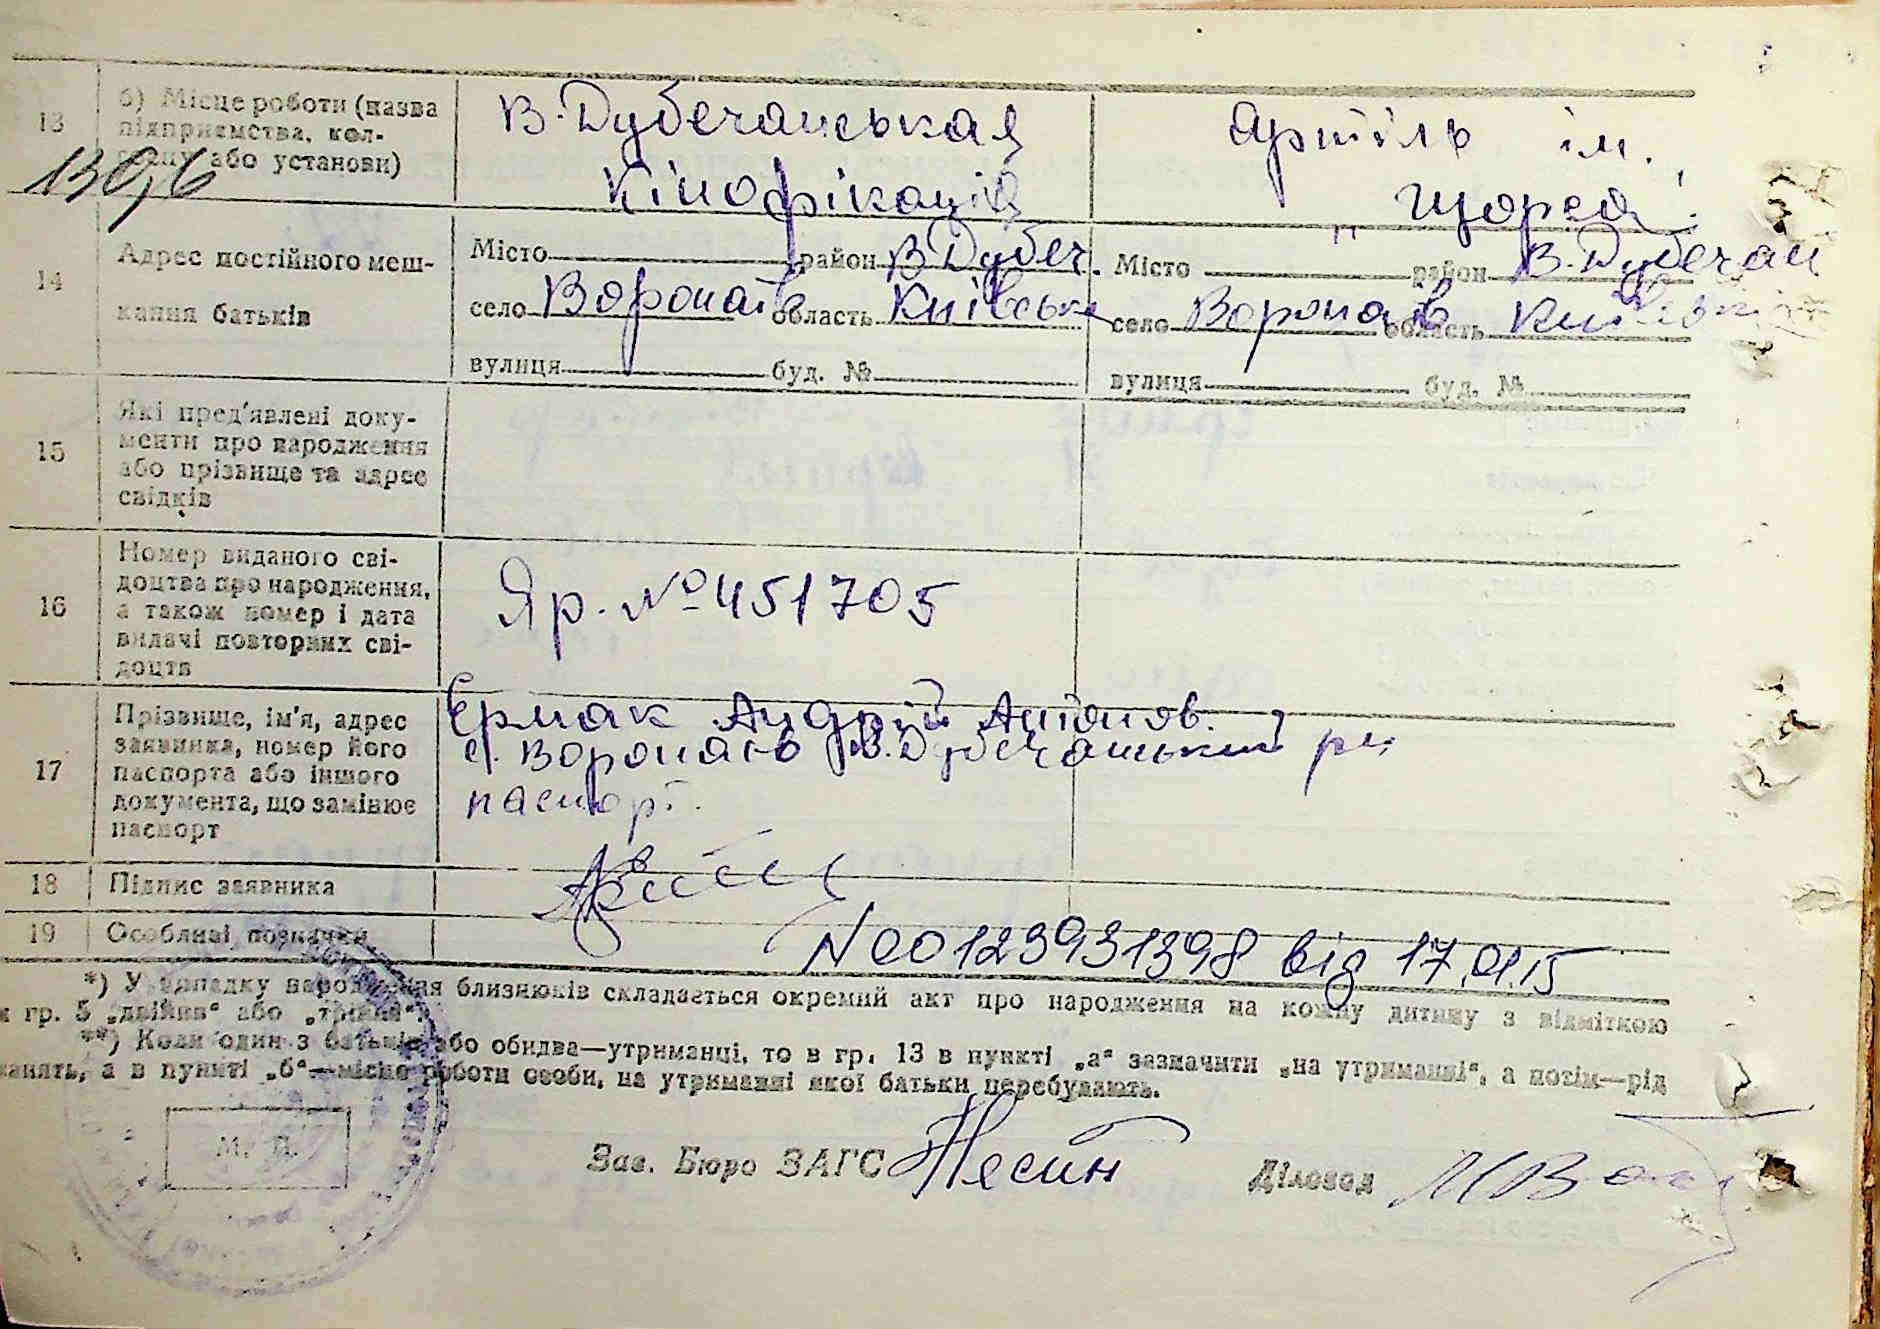 13
б) Місце роботи (назва
підприємства, кол-
госпу або установи)
130,6
В-Дубечанськая
Кінофікація
Артіль ім.
"Щорса"
14
Адрес постійного меш-
кання батьків
Місто район В Дубеч.
село Воропаїв область Київська
вулиця буд. №
Місто район В. Дубечан
село Воропаїв область Київськ
вулиця буд. №
15
Які пред'явлені доку-
менти про народження
або прізвище та адрес
свідків
16
Номер виданого сві-
доцтва про народження,
а також номер і дата
видачі повторних сві-
доцтв
Яр. №451705
17
Прізвище, ім'я, адрес
заявника, номер його
паспорта або іншого
документа, що замінює
паспорт
Єрмак Андрій Антонов.
с. Воропаїв В.Дубечанський р-н
паспорт.
18
Підпис заявника
19
Особливі позначки
N 00123931398 від 17.01.15
*) У випадку народження близнюків складається окремий акт про народження на кожну дитину з відміткою
гр. 5 „двійня“ або „трійня“.
**) Коли один з батьків або обидва—утриманці, то в гр. 13 в пункті „а“ зазначити „на утриманні“, а потім—рід
занять, а в пункті „б“—місце роботи особи, на утриманні якої батьки перебувають.
М. П.
Зав. Бюро ЗАГС Несин
Діловод